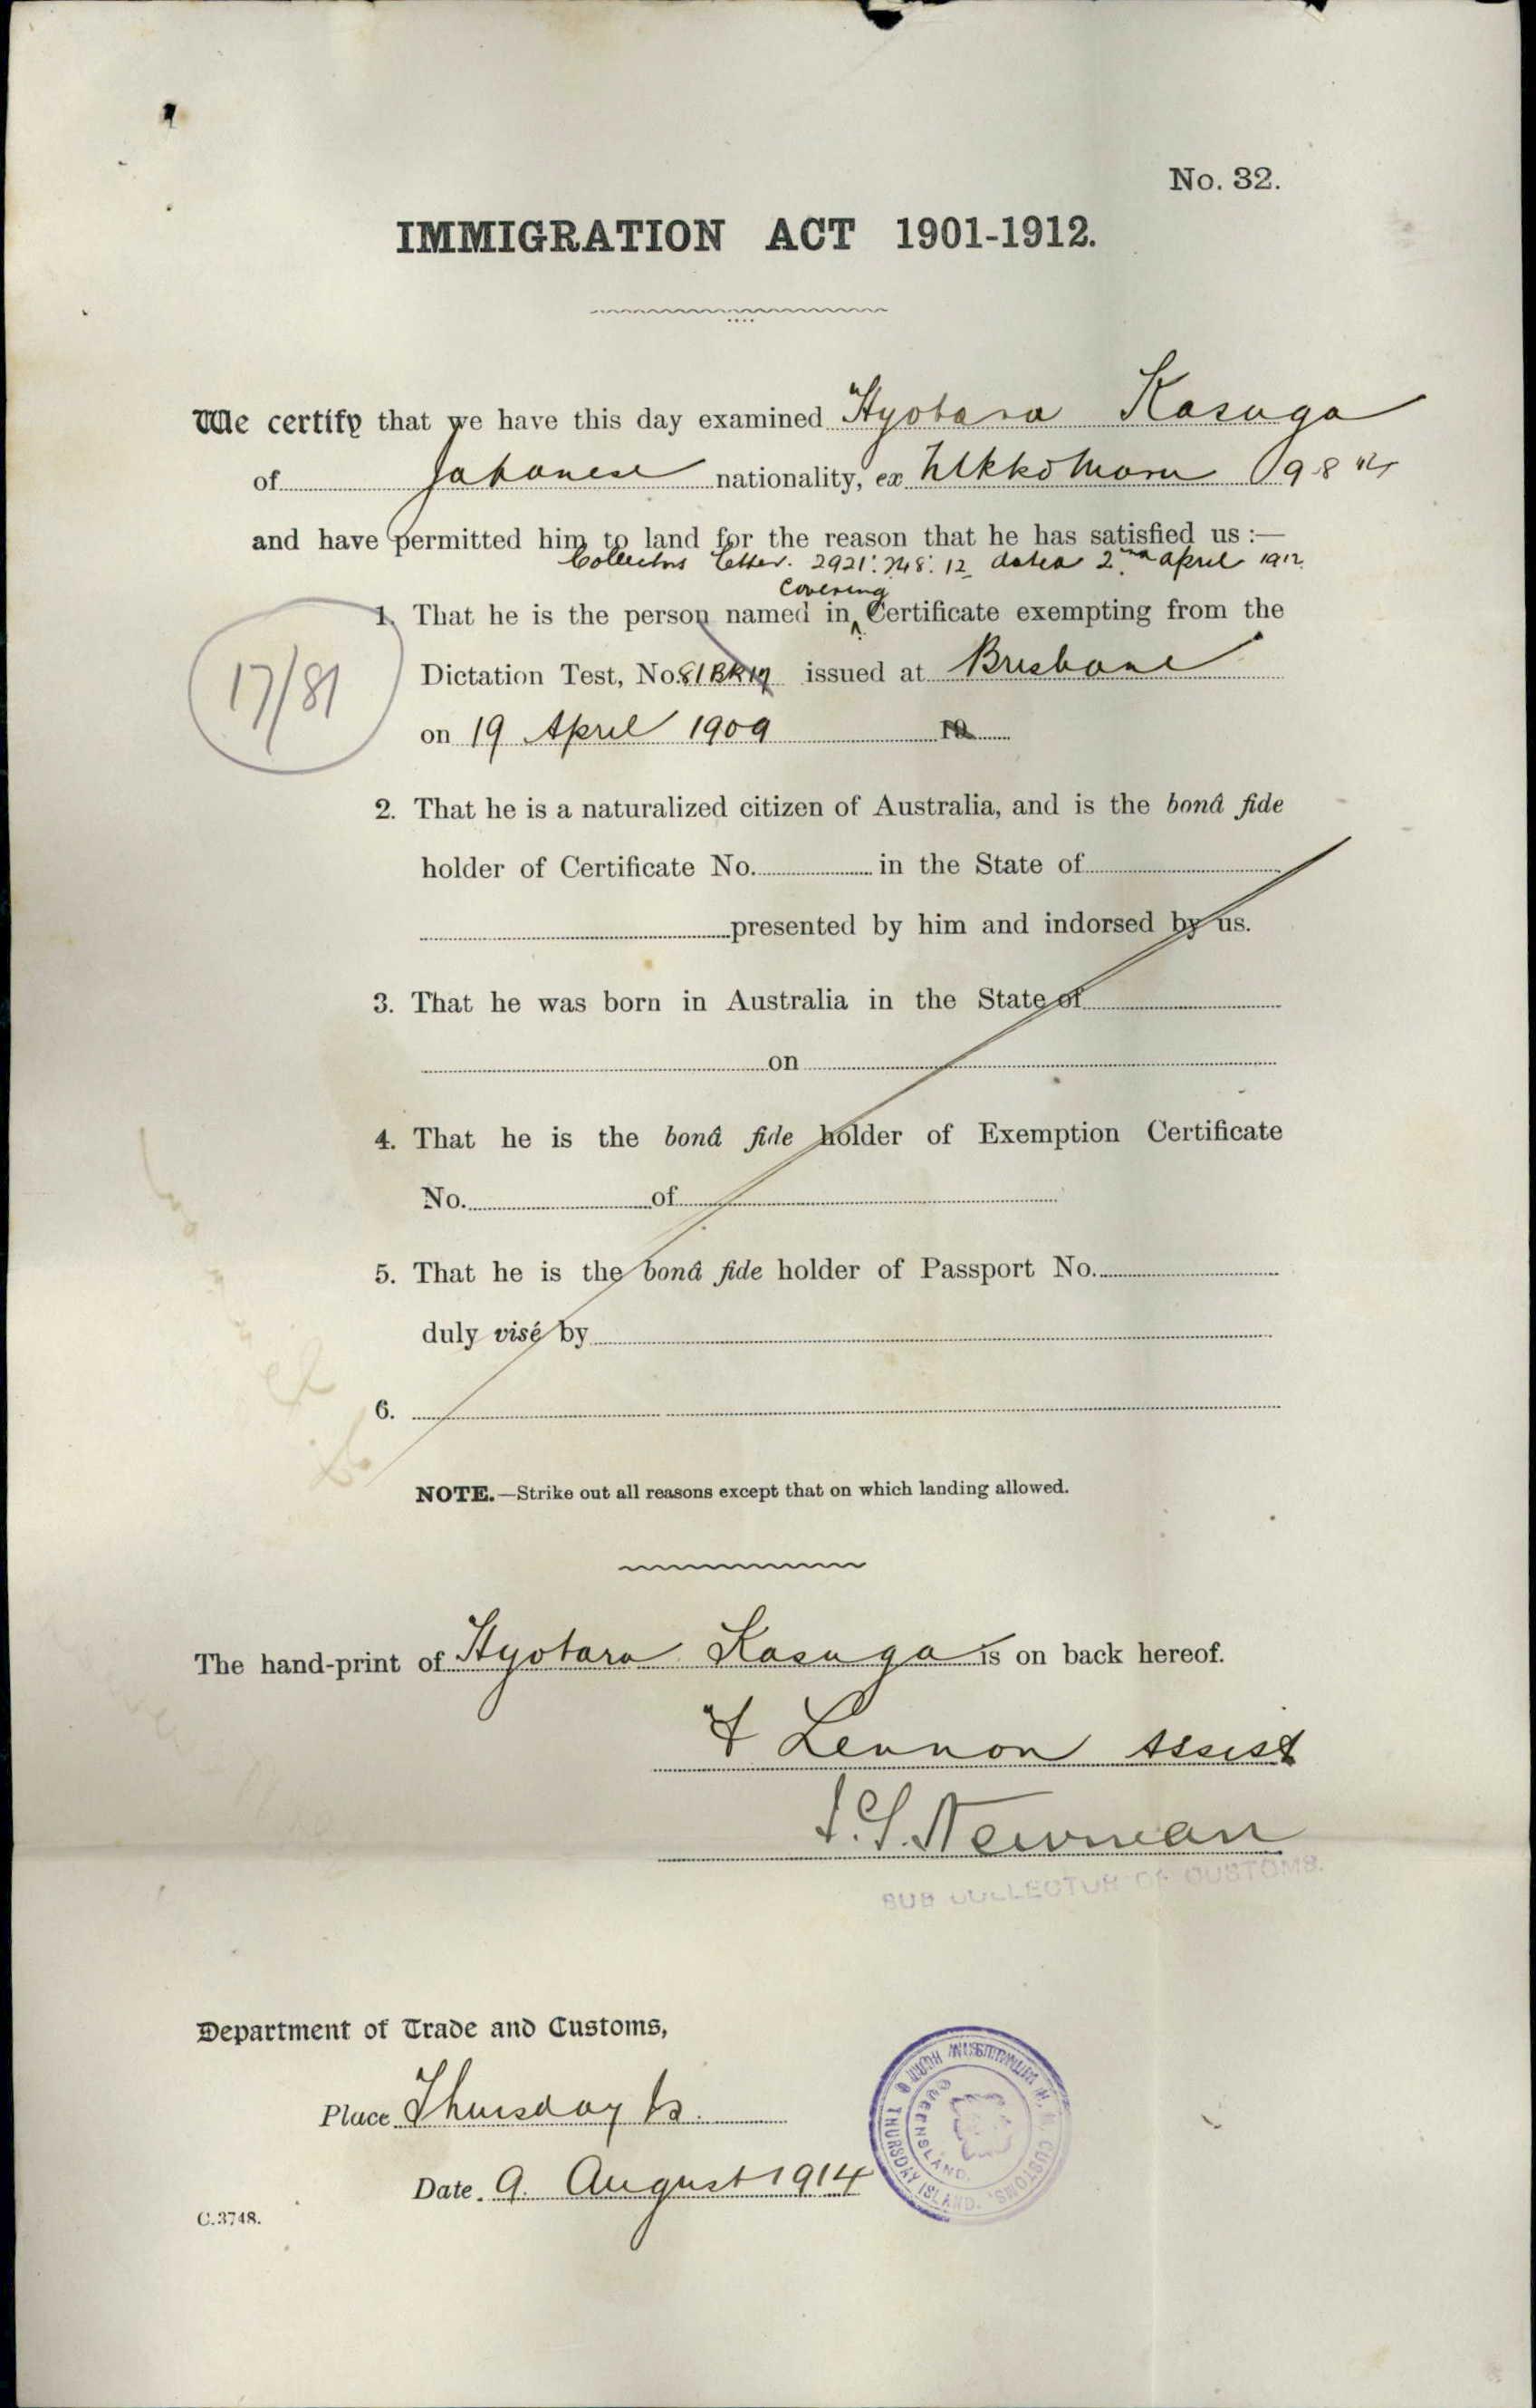 No. 32.
IMMIGRATION ACT 1901-1912.
We certify that we have this day examined Hyotaro Kasuga
of Japanese nationality, ex Nikko Maru 9.8.14
and have permitted him to land for the reason that he has satisfied us :—
Collectors letter. 2921: 248: 12 dated 2nd April 1912.
covering
1. That he is the person named in Certificate exempting from the
17/81
Dictation Test, No. 81 BK 17 issued at Brisbane
on 19 April 1909 19
2. That he is a naturalized citizen of Australia, and is the bonâ fide
holder of Certificate No. in the State of
presented by him and indorsed by us.
3. That he was born in Australia in the State of
on
4. That he is the bonâ fide holder of Exemption Certificate
No. of
5. That he is the bonâ fide holder of Passport No.
duly visé by
6.
NOTE.—Strike out all reasons except that on which landing allowed.
The hand-print of Hyotaro Kasuga is on back hereof.
Lennon Assist
Newman
SUB COLLECTOR OF CUSTOMS.
Department of Trade and Customs,
Place Thursday Is.
Date 9. August 1914
C.3748.
H.M. CUSTOMS. THURSDAY ISLAND.
QUEENSLAND.